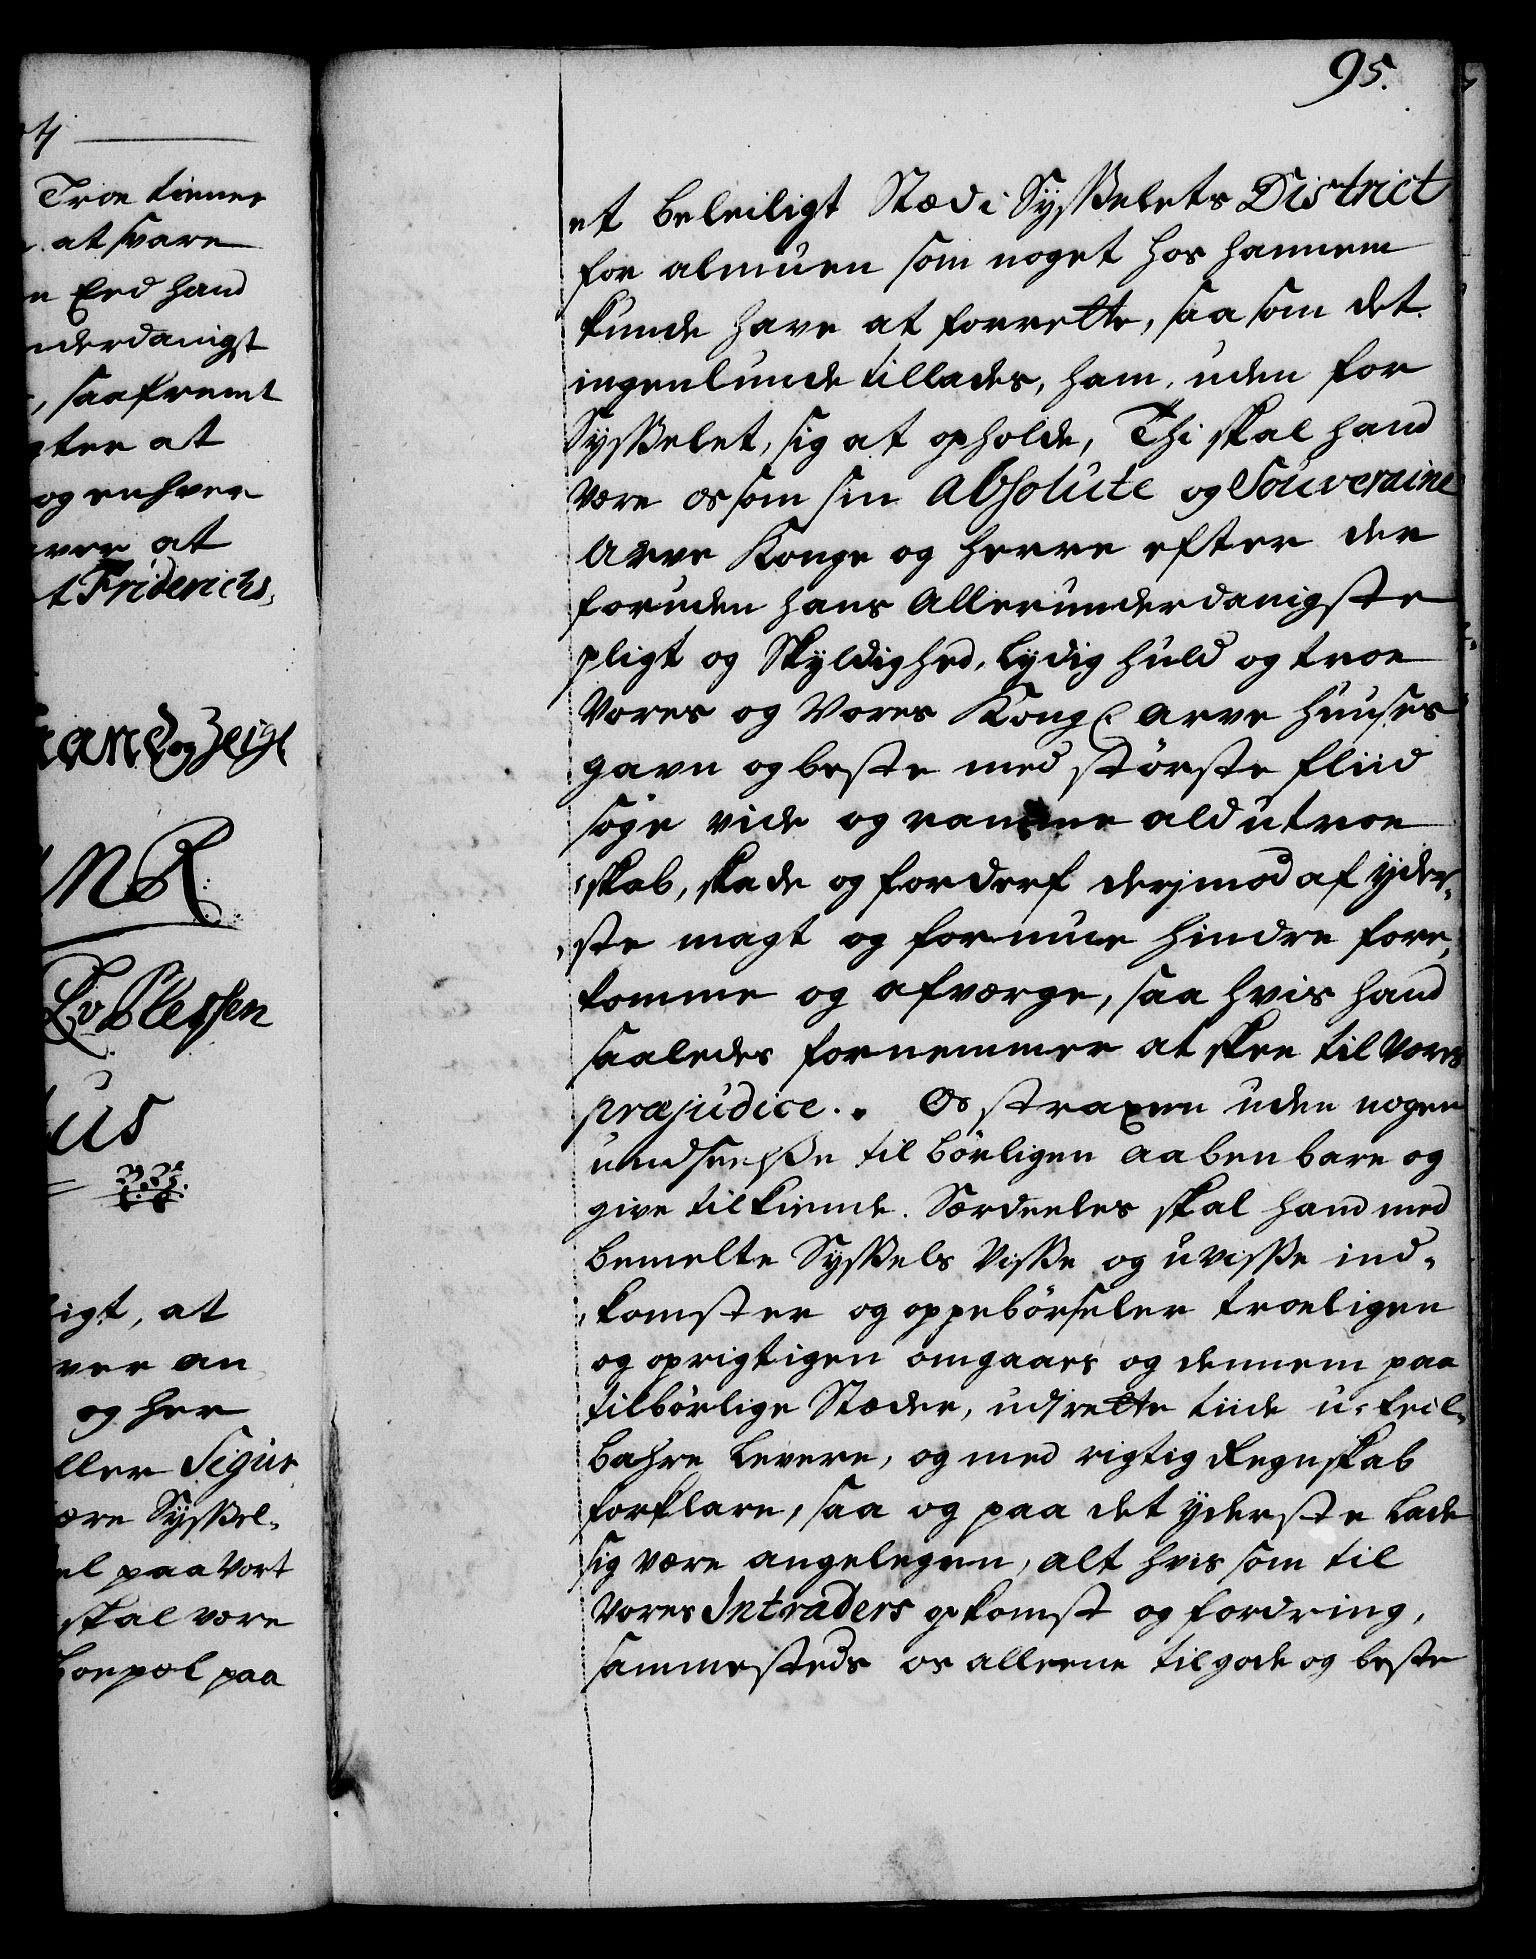 Troe tiener
at svare
Eed hand
nderdanigst
, saafremt
gter at
og enhver
at
t Friderichs,
aand og Zeigl
MR
Lv Plessen
us
igt, at
ver an
og her
ller Sigur
ære Sÿssel-
el paa Vort
skal være
paa
95.
et beleiligt Stæd i Sÿsselets District
for almuen som noget hos hannem
kunde have at forrette, saa som det
ingenlunde tillades, ham, uden for
Sÿsselet, sig at opholde, Thi skal hand
være os som sin absolute og Souveraine
Arve Konge og Herre efter den
foruden hans Allerunderdanigste
pligt og Skÿldighed, Lÿdig huld og troe
Vores og Vores Kongl arve Huuses
gavn og beste med største fliid
søge vide og ramme ald utroe
skab, skade og forderf derjmod af ÿder-
ste magt og formue hindre fore,
komme og afværge, saa hvis hand
saaledes fornemmer at skee til Vores
præjudice.. Os straxen uden nogen
undseelsse til børligen aabenbare og
give tilkiende. Særdeeles skal hand med
bemelte Sÿssels Visse og uvisse ind-
komster og oppebørseler troeligen
og oprigtigen omgaaes og dennem paa
tilbørlige Stæder, udj rette tiide u-feil-
bahre Levere, og med rigtig Regnskab
forklare, saa og paa det ÿderste Lade
sig være angelegen, alt hvis som til
Vores Intraders opkomst og fordring,
sammesteds os alleene tilgode og beste